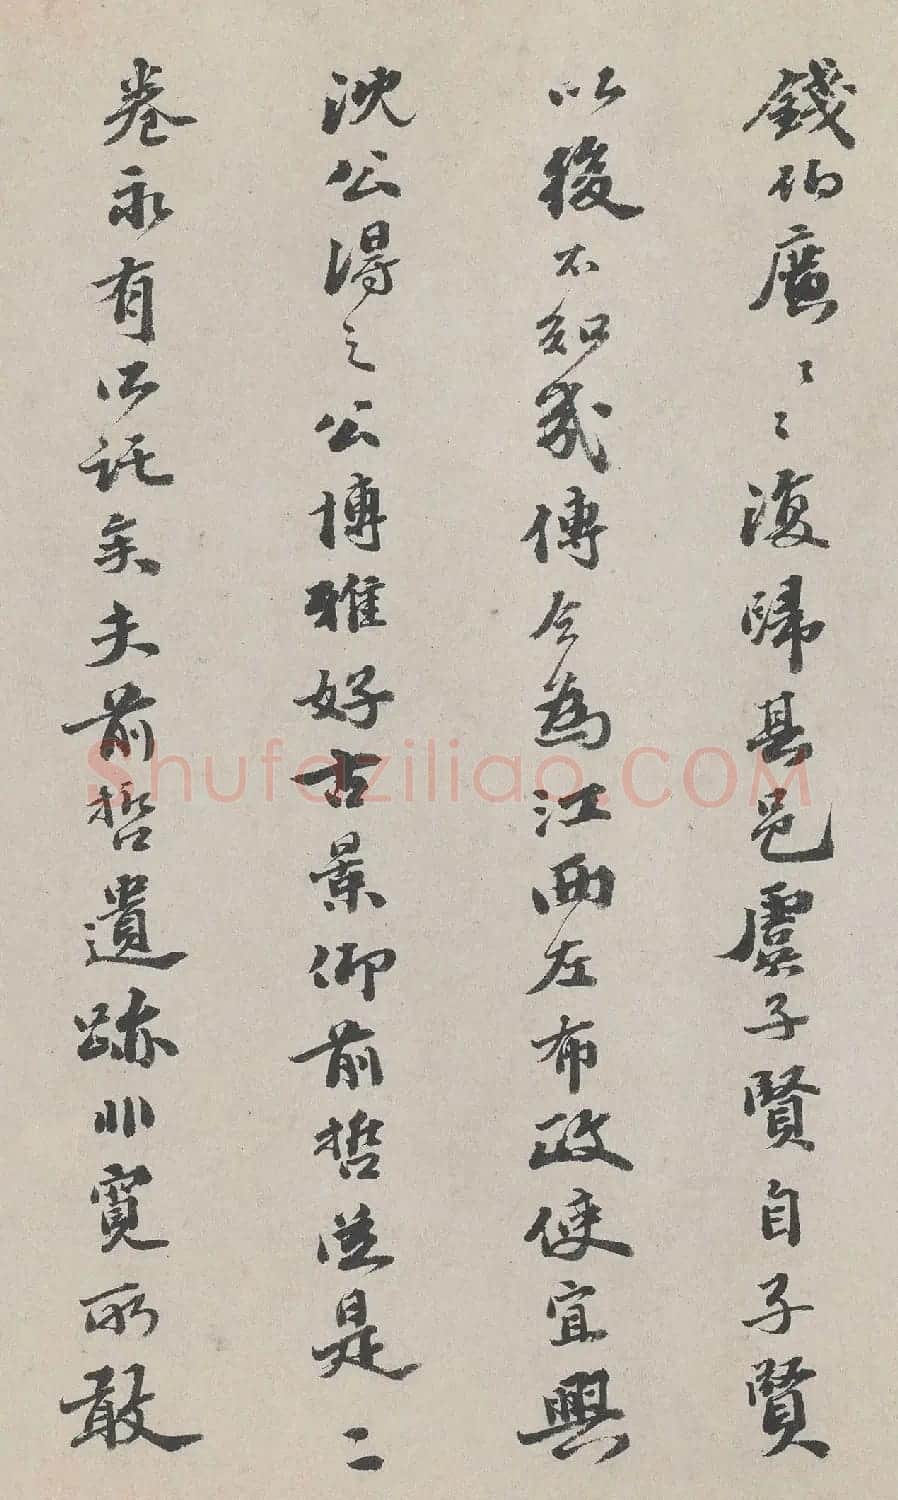 錢伯廣〻〻復歸其邑虞子賢自子賢
以後不知幾傳今為江西左布政使宜興
沈公得之公博雅好古景仰前哲從是二
卷永有以託矣夫前哲遺跡非寬所敢
Shufaziliao.COM